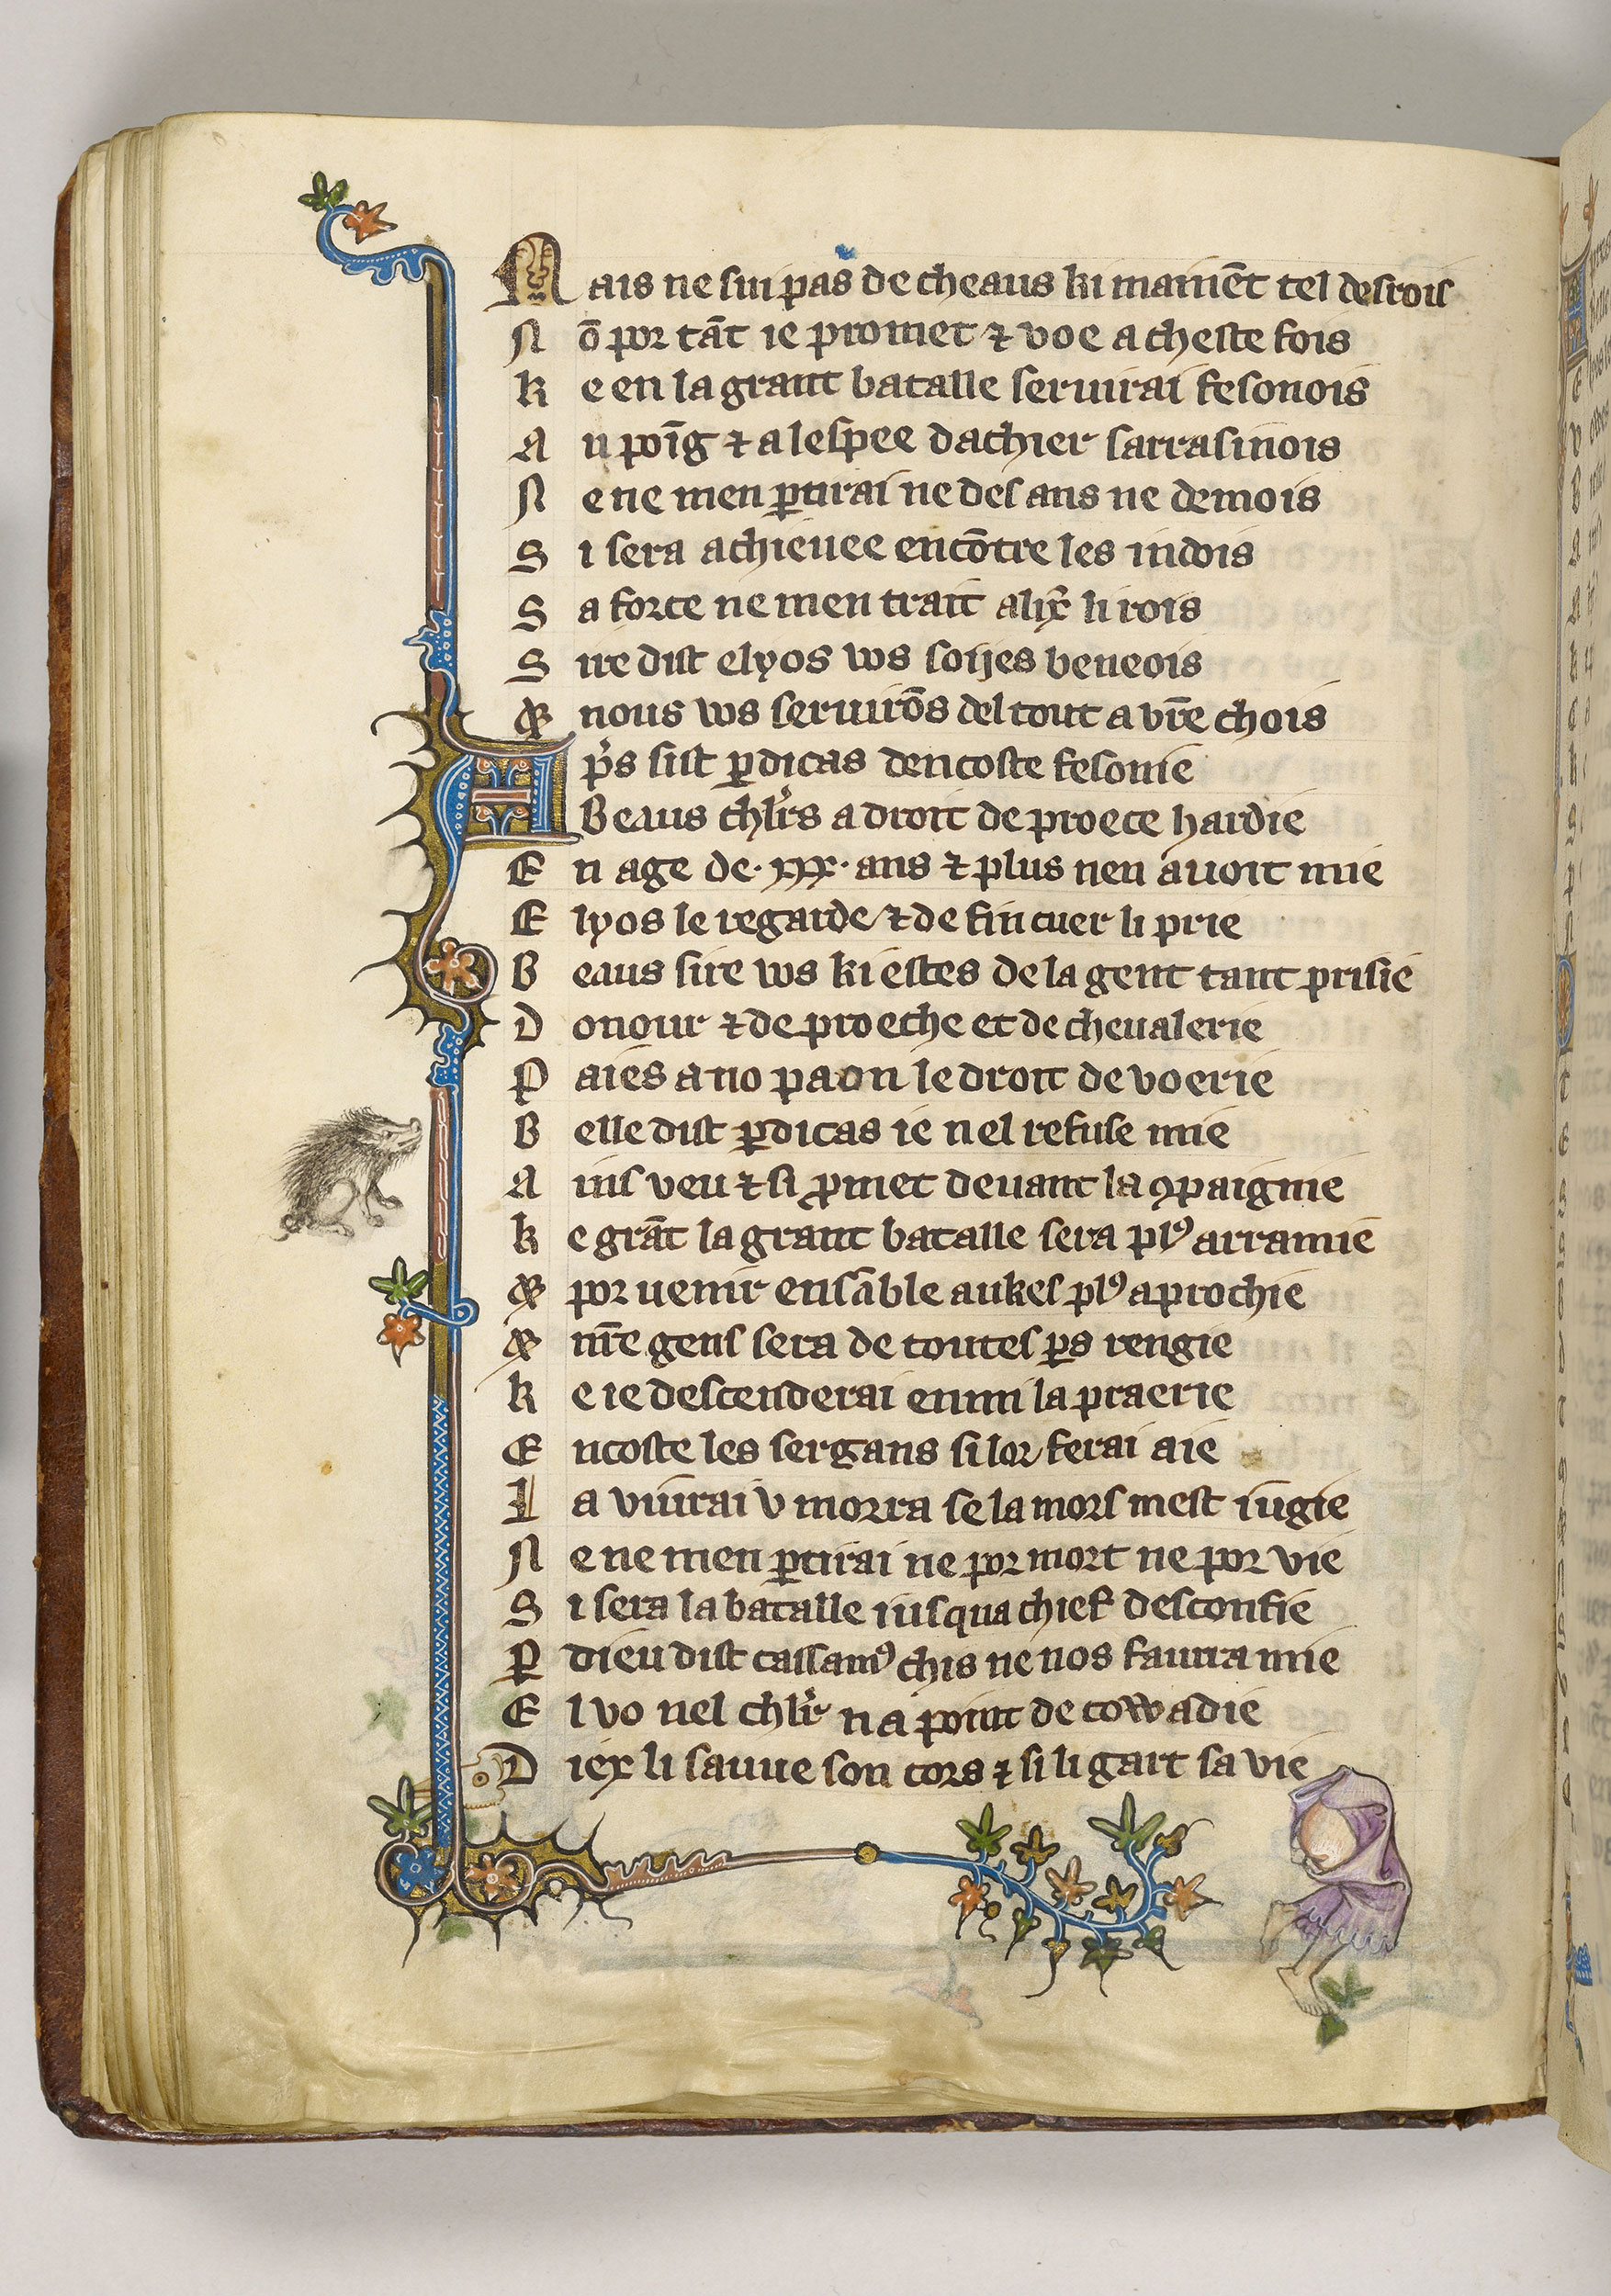 Mais ne sui pas de cheaus ki mainēt tel desrois
Nō por tāt ie promet ⁊ voe a cheste fois
Ke en la grant batalle seruirai fesonois
Au poīg ⁊ a lespee dachier sarrasinois
Ne ne men ꝑtirai ne des ans ne demois
Si sera achieuee encōtre les indois
Sa force ne men trait alix̄ li rois
Sire dist elyos vos soijes beneois
⁊ nous vos seruirōs del tout a vr̄e chois
Ap̄s sist ꝑdicas dencoste fesonie
Beaus chl̄rs a droit de proece hardie
En age de ·xxx· ans ⁊ plus nen auoit mie
Elyos le regarde ⁊ de fin cuer li prie
Beaus sire vos ki estes de la gent tant prisie
Donour ⁊ de proeche et de cheualerie
Paies a no paon le droit de voerie
Belle dist ꝑdicas ie nel refuse mie
Ains veu ⁊ si ꝓmet deuant la ꝯpaignie
Ke grāt la grant batalle sera plꝰ arramie
⁊ por uenir ensāble aukes plꝰ aprochie
⁊ nr̄e gens sera de toutes ꝑs rengie
Ke ie descenderai enmi la praerie
Encoste les sergans si lor ferai aie
La viurai v morra se la mors mest iugie
Ne ne men ꝑtirai ne por mort ne por vie
Si sera la batalle iusqua chief desconfie
Ꝑ dieu dist cassamꝰ chis ne nos faurra mie
El vo nel chl̄r na point de cowadie
Diex li sauue son cors ⁊ si li gart sa vie